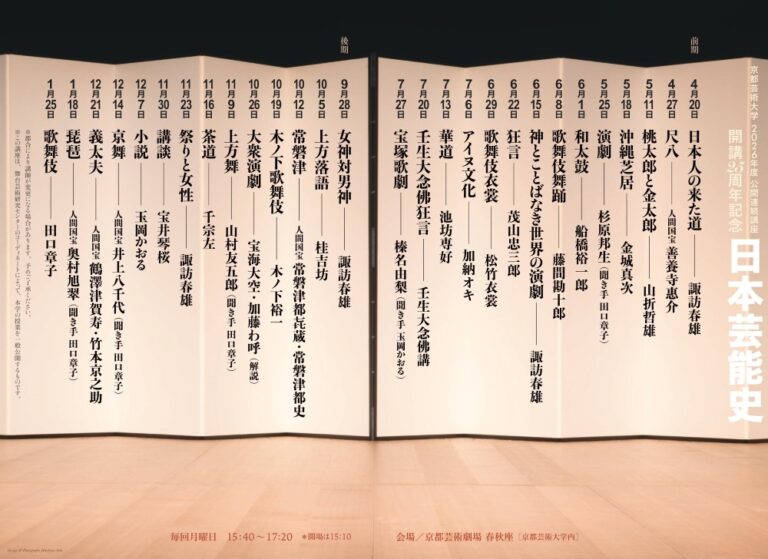 京都芸術大学 2026年度 公開連続講座
開講25周年記念
日本芸能史
前期
4月20日 日本人の来た道 諏訪春雄
4月27日 尺八 人間国宝 善養寺惠介
5月11日 桃太郎と金太郎 山折哲雄
5月18日 沖縄芝居 金城真次
5月25日 演劇 杉原邦生(聞き手 田口章子)
6月1日 和太鼓 船橋裕一郎
6月8日 歌舞伎舞踊 藤間勘十郎
6月15日 神とことばなき世界の演劇 諏訪春雄
6月22日 狂言 茂山忠三郎
6月29日 歌舞伎衣裳 松竹衣裳
7月6日 アイヌ文化 加納オキ
7月13日 華道 池坊専好
7月20日 壬生大念佛狂言 壬生大念佛講
7月27日 宝塚歌劇 榛名由梨(聞き手 玉岡かおる)
後期
9月28日 女神対男神 諏訪春雄
10月5日 上方落語 桂吉坊
10月12日 常磐津 人間国宝 常磐津都㐂蔵・常磐津都史
10月19日 木ノ下歌舞伎 木ノ下裕一
10月26日 大衆演劇 宝海大空・加藤わ呼(解説)
11月9日 上方舞 山村友五郎(聞き手 田口章子)
11月16日 茶道 千宗左
11月23日 祭りと女性 諏訪春雄
11月30日 講談 宝井琴桜
12月7日 小説 玉岡かおる
12月14日 京舞 人間国宝 井上八千代(聞き手 田口章子)
12月21日 義太夫 人間国宝 鶴澤津賀寿・竹本京之助
1月18日 琵琶 人間国宝 奥村旭翠(聞き手 田口章子)
1月25日 歌舞伎 田口章子
※都合により講師が変更になる場合があります。予めご了承ください。
※この講座は、舞台芸術研究センターのコーディネートによって、本学の授業を一般公開するものです。
毎回月曜日 15:40〜17:20 *開場は15:10
会場/京都芸術劇場 春秋座[京都芸術大学内]